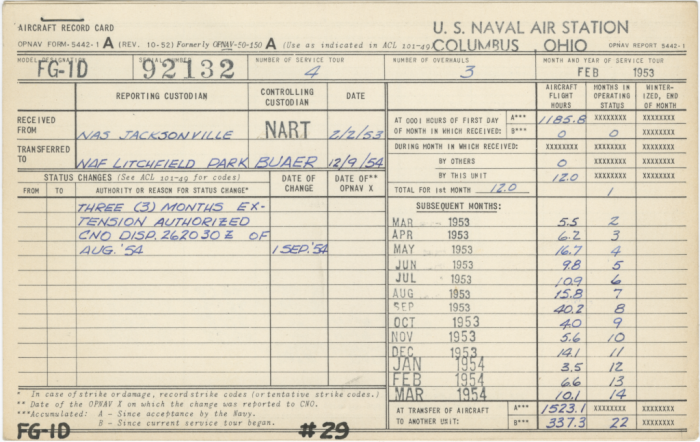 AIRCRAFT RECORD CARD
OPNAV FORM-5442-1 A (REV. 10-52) Formerly OPNAV-50-150 A (Use as indicated in ACL 101-49)
U. S. NAVAL AIR STATION
COLUMBUS OHIO
OPNAV REPORT 5442-1
MODEL DESIGNATION SERIAL NUMBER NUMBER OF SERVICE TOUR NUMBER OF OVERHAULS MONTH AND YEAR OF SERVICE TOUR
FG-1D 92132 4 3 FEB 1953
REPORTING CUSTODIAN CONTROLLING CUSTODIAN DATE
RECEIVED FROM NAS JACKSONVILLE NART 2/2/53
TRANSFERRED TO NAF LITCHFIELD PARK BUAER 12/9/54
STATUS CHANGES (See ACL 101-49 for codes) DATE OF CHANGE DATE OF** OPNAV X
FROM TO AUTHORITY OR REASON FOR STATUS CHANGE*
THREE (3) MONTHS EX-
TENSION AUTHORIZED
CNO DISP. 262030Z OF
AUG. '54 1 SEP. '54
AIRCRAFT FLIGHT HOURS MONTHS IN OPERATING STATUS WINTER-IZED, END OF MONTH
AT 0001 HOURS OF FIRST DAY A*** 1185.8 XXXXXXXX XXXXXXXX
OF MONTH IN WHICH RECEIVED: B*** 0 0 XXXXXXXX
DURING MONTH IN WHICH RECEIVED: XXXXXXXX XXXXXXXX XXXXXXXX
BY OTHERS 0 XXXXXXXX XXXXXXXX
BY THIS UNIT 12.0 XXXXXXXX XXXXXXXX
TOTAL FOR 1st MONTH 12.0 1
SUBSEQUENT MONTHS:
MAR 1953 5.5 2
APR 1953 6.2 3
MAY 1953 16.7 4
JUN 1953 9.8 5
JUL 1953 10.9 6
AUG 1953 15.8 7
SEP 1953 40.2 8
OCT 1953 4.0 9
NOV 1953 5.6 10
DEC 1953 14.1 11
JAN 1954 3.5 12
FEB 1954 6.6 13
MAR 1954 10.1 14
AT TRANSFER OF AIRCRAFT A*** 1523.1 XXXXXXXX XXXXXXXX
TO ANOTHER UNIT: B*** 337.3 22 XXXXXXXX
* In case of strike or damage, record strike codes (or tentative strike codes.)
** Date of the OPNAV X on which the change was reported to CNO.
***Accumulated: A - Since acceptance by the Navy.
B - Since current service tour began.
FG-1D #29